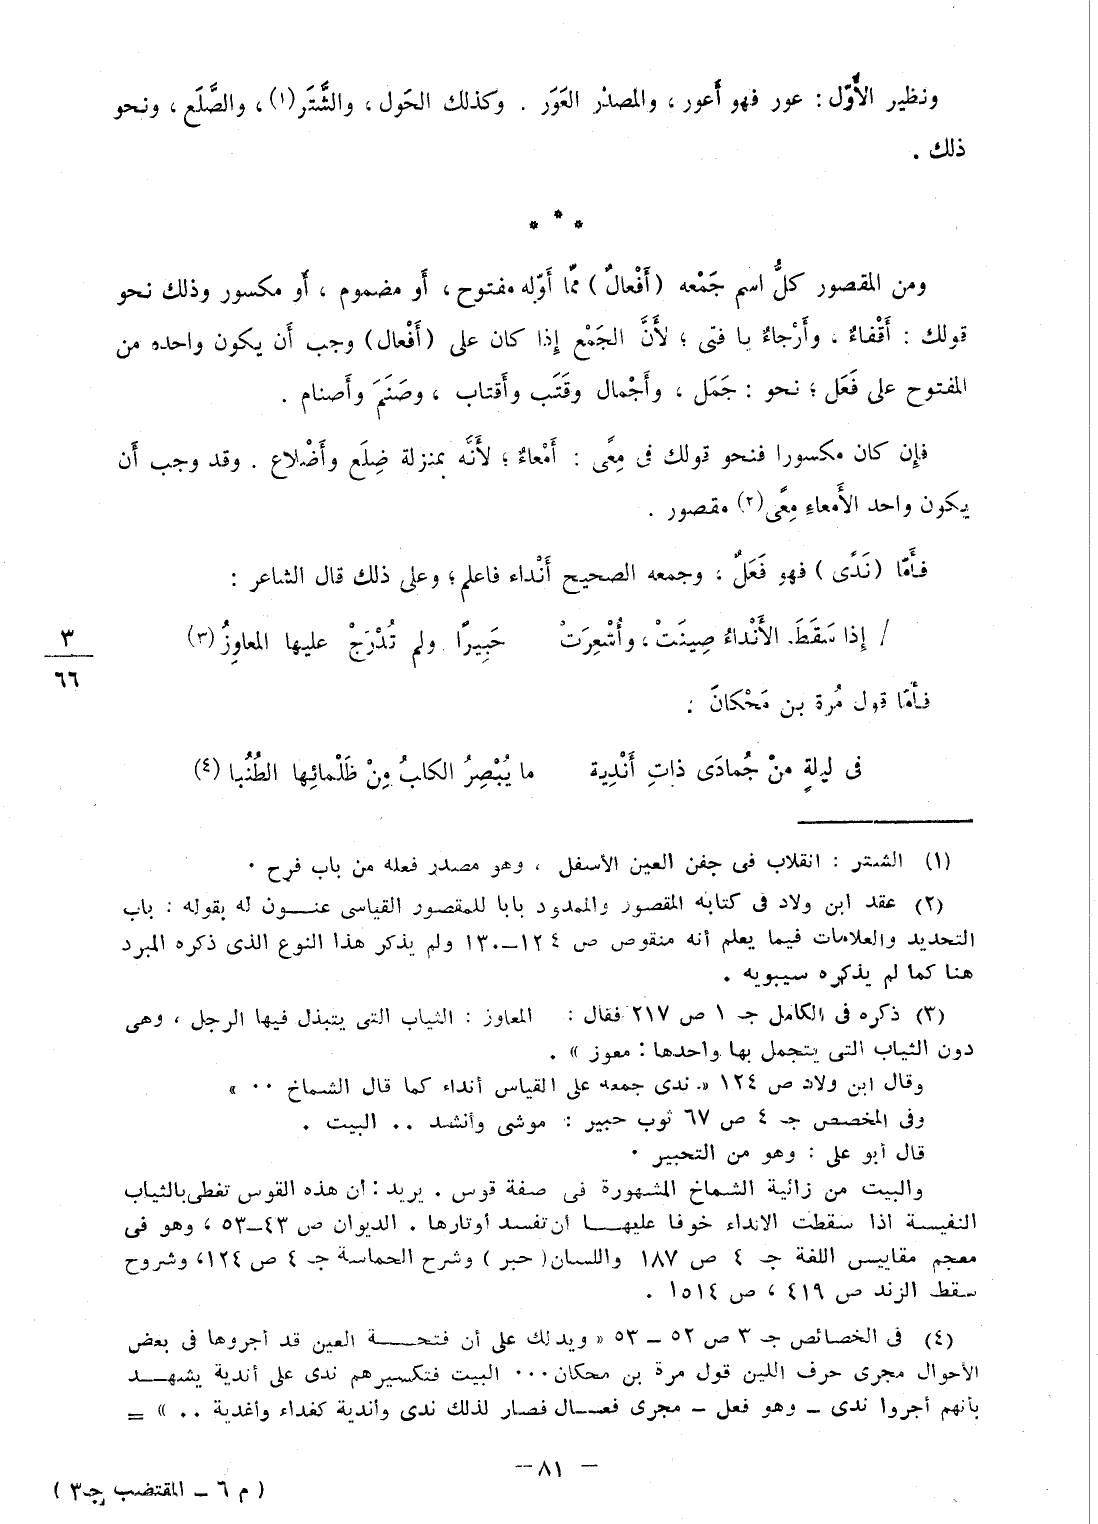 ونظير الأَوّل : عور فهو أَعور ، والمصدر العَوَر . وكذلك الحَول ، والشَّتَر (١) ، والصَّلَع ، ونحو
ذلك .
* * *
ومن المقصور كلُّ اسم جَمْعه (أَفْعالٌ) ممّا أَوّله مفتوح ، أَو مضموم ، أَو مكسور وذلك نحو
قولك : أَقْفاءٌ ، وأَرْجاءٌ يا فتى ؛ لأَنَّ الجَمْع إِذا كان على (أَفْعال) وجب أَن يكون واحده من
المفتوح على فَعَل ؛ نحو : جَمَل ، وأَجْمال وقَتَب وأَقتاب ، وصَنَم وأَصنام .
فإِن كان مكسورا فنحو قولك فى مِعًى : أَمْعاءٌ ؛ لأَنَّه بمنزلة ضِلَع وأَضْلاع . وقد وجب أَن
يكون واحد الأَمعاءِ مِعًى (٢) مقصور .
فأَمّا (نَدًى) فهو فَعَلٌ ، وجمعه الصحيح أَنْداء فاعلم ؛ وعلى ذلك قال الشاعر :
/ إِذا سَقَطَ الأَنْداءُ صِينَتْ ، وأُشْعِرَتْ حَبِيرًا ولم تُدْرَجْ عليها المعاوِزُ (٣)
٣
٦٦
فأَمّا قول مُرة بن مَحْكانَ :
فى ليلةٍ منْ جُمادَى ذاتِ أَنْدِية ما يُبْصِرُ الكلبُ مِنْ ظَلْمائِها الطُنُبا (٤)
(١) الشتر : انقلاب فى جفن العين الأسفل ، وهو مصدر فعله من باب فرح .
(٢) عقد ابن ولاد فى كتابه المقصور والممدود بابا للمقصور القياسى عنون له بقوله : باب
التحديد والعلامات فيما يعلم أنه منقوص ص ١٢٤–١٣٠ ولم يذكر هذا النوع الذى ذكره المبرد
هنا كما لم يذكره سيبويه .
(٣) ذكره فى الكامل جـ ١ ص ٢١٧ فقال : المعاوز : الثياب التى يتبذل فيها الرجل ، وهى
دون الثياب التى يتجمل بها واحدها : معوز » .
وقال ابن ولاد ص ١٢٤ « ندى جمعه على القياس أنداء كما قال الشماخ .. »
وفى المخصص جـ ٤ ص ٦٧ ثوب حبير : موشى وأنشد .. البيت .
قال أبو على : وهو من التحبير .
والبيت من زائية الشماخ المشهورة فى صفة قوس . يريد : ان هذه القوس تغطى بالثياب
النفيسة اذا سقطت الانداء خوفا عليها ان تفسد أوتارها . الديوان ص ٤٣–٥٣ ، وهو فى
معجم مقاييس اللغة جـ ٤ ص ١٨٧ واللسان ( حبر ) وشرح الحماسة جـ ٤ ص ١٢٤ ، وشروح
سقط الزند ص ٤١٩ ، ص ١٥١٤ .
(٤) فى الخصائص جـ ٣ ص ٥٢ – ٥٣ « ويدلك على أن فتحة العين قد أجروها فى بعض
الأحوال مجرى حرف اللين قول مرة بن محكان ... البيت فتكسيرهم ندى على أندية يشهد
بأنهم أجروا ندى – وهو فعل – مجرى فعال فصار لذلك ندى وأندية كغداء وأغدية .. » =
– ٨١ –
( م ٦ – المقتضب جـ٣ )